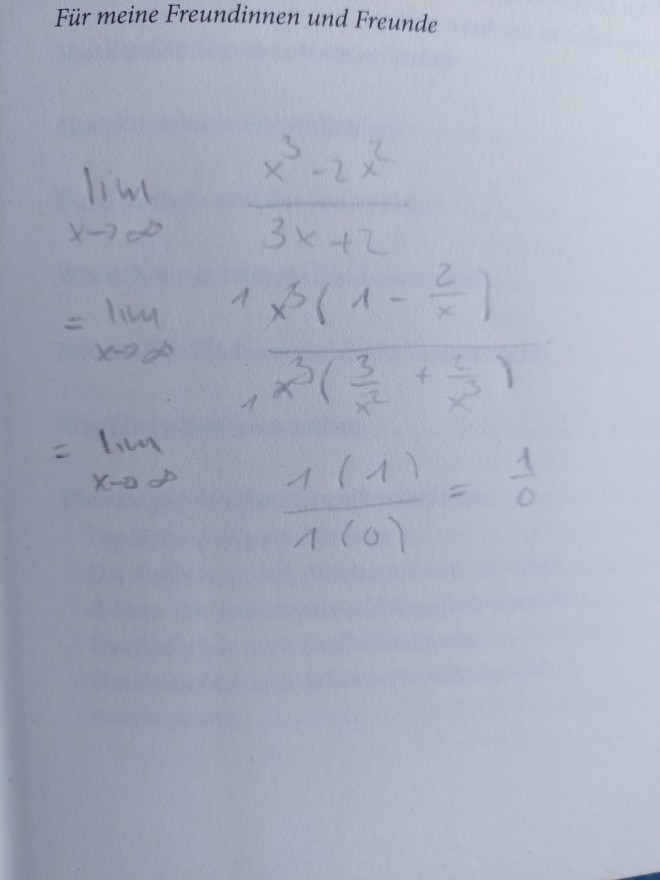 Für meine Freundinnen und Freunde
lim x→∞ (x³ - 2x²)/(3x + 2)
= lim x→∞ 1 x³(1 - 2/x) / 1 x³(3/x² + 2/x³)
= lim x→∞ 1(1)/1(0) = 1/0